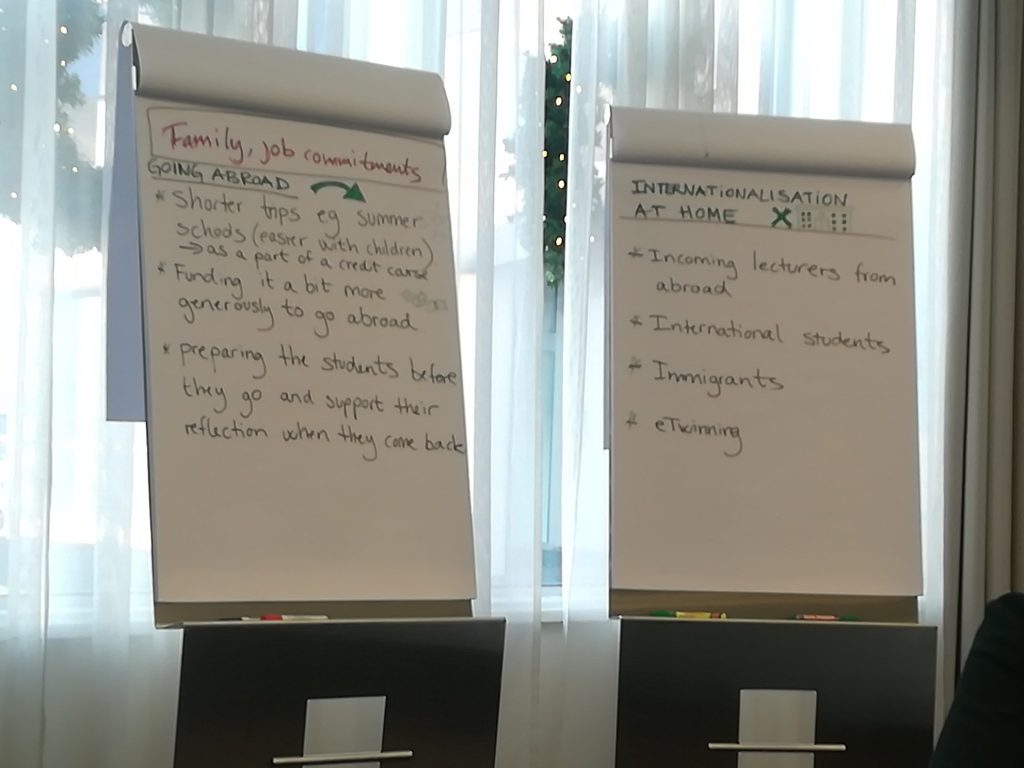 Family, job commitments
GOING ABROAD
* Shorter trips eg summer
schools (easier with children)
→ as a part of a credit
* Funding it a bit more
generously to go abroad
* preparing the students before
they go and support their
reflection when they come back
INTERNATIONALISATION
AT HOME
* Incoming lecturers from
abroad
* International students
* Immigrants
* eTwinning